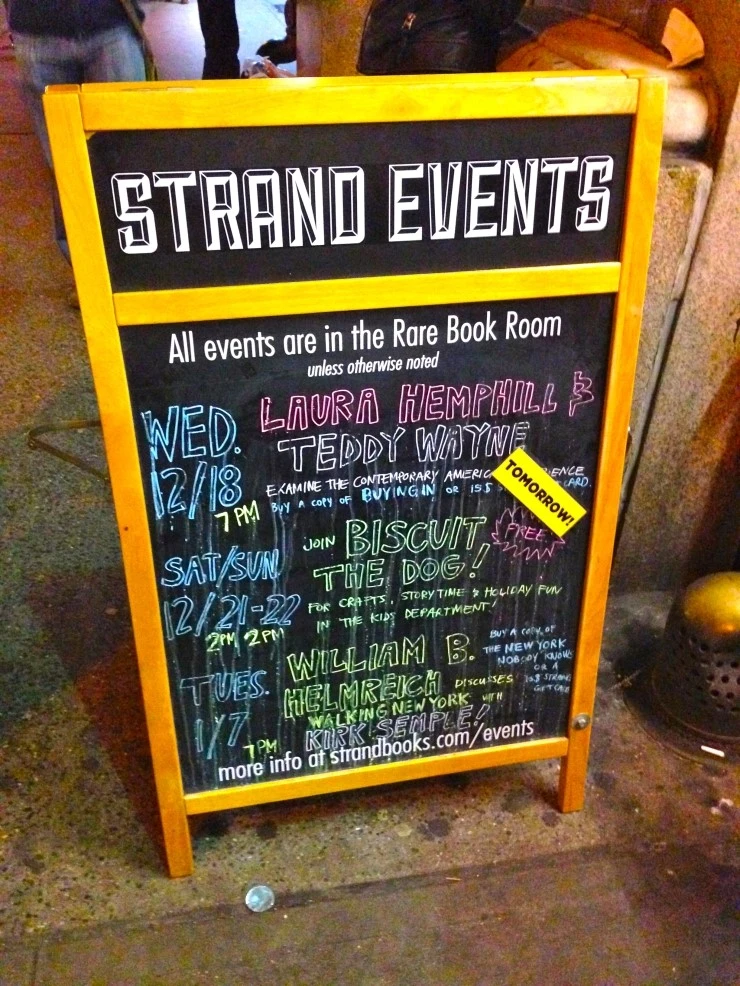 STRAND EVENTS
All events are in the Rare Book Room
unless otherwise noted
WED. LAURA HEMPHILL &
12/18 TEDDY WAYNE
EXAMINE THE CONTEMPORARY
7 PM BUY A COPY OF BUYING IN OR
TOMORROW!
FREE
SAT/SUN JOIN BISCUIT
12/21-22 THE DOG!
2PM, 2PM FOR CRAFTS, STORYTIME & HOLIDAY FUN
IN THE KIDS DEPARTMENT!
TUES. WILLIAM B.
1/7 HELMREICH DISCUSSES
7PM WALKING NEW YORK WITH
KIRK SEMPLE!
BUY A COPY OF
THE NEW YORK
NOBODY KNOWS
OR A
more info at strandbooks.com/events